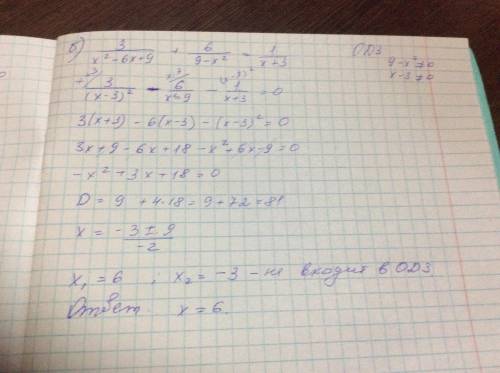 б) 3/(x²-6x+9) + 6/(9-x²) - 1/(x+3) ОДЗ
9-x²≠0
x-3≠0
3/(x-3)² - 6/(x²-9) - 1/(x+3) = 0
3(x+3) - 6(x-3) - (x-3)² = 0
3x+9-6x+18-x²+6x-9=0
-x²+3x+18=0
D = 9 +4·18 = 9+72=81
x = -3±9/-2
x₁ = 6 ; x₂ = -3 - не входит в ОДЗ
Ответ x = 6.